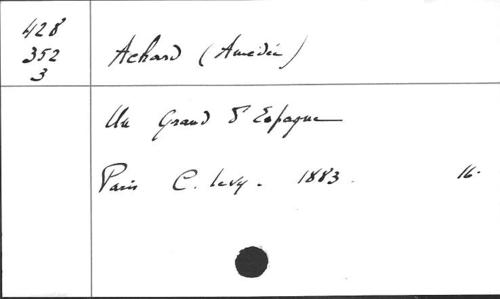 428
352
3
Achard (Amédée)
Un Grand d'Espagne
Paris C. Levy. 1883. 16.